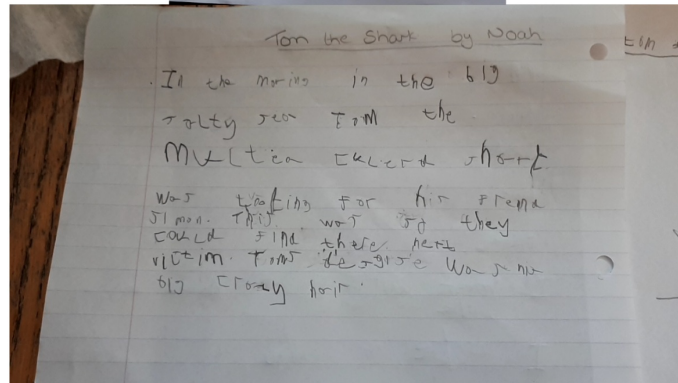 Tom the Shark by Noah
In the moring in the big
salty sea Tom the
multea culerd shark
was looking for his frend
simon. This was so they
could find there next
victim. Toms desgise was his
big crazy hair.
tom